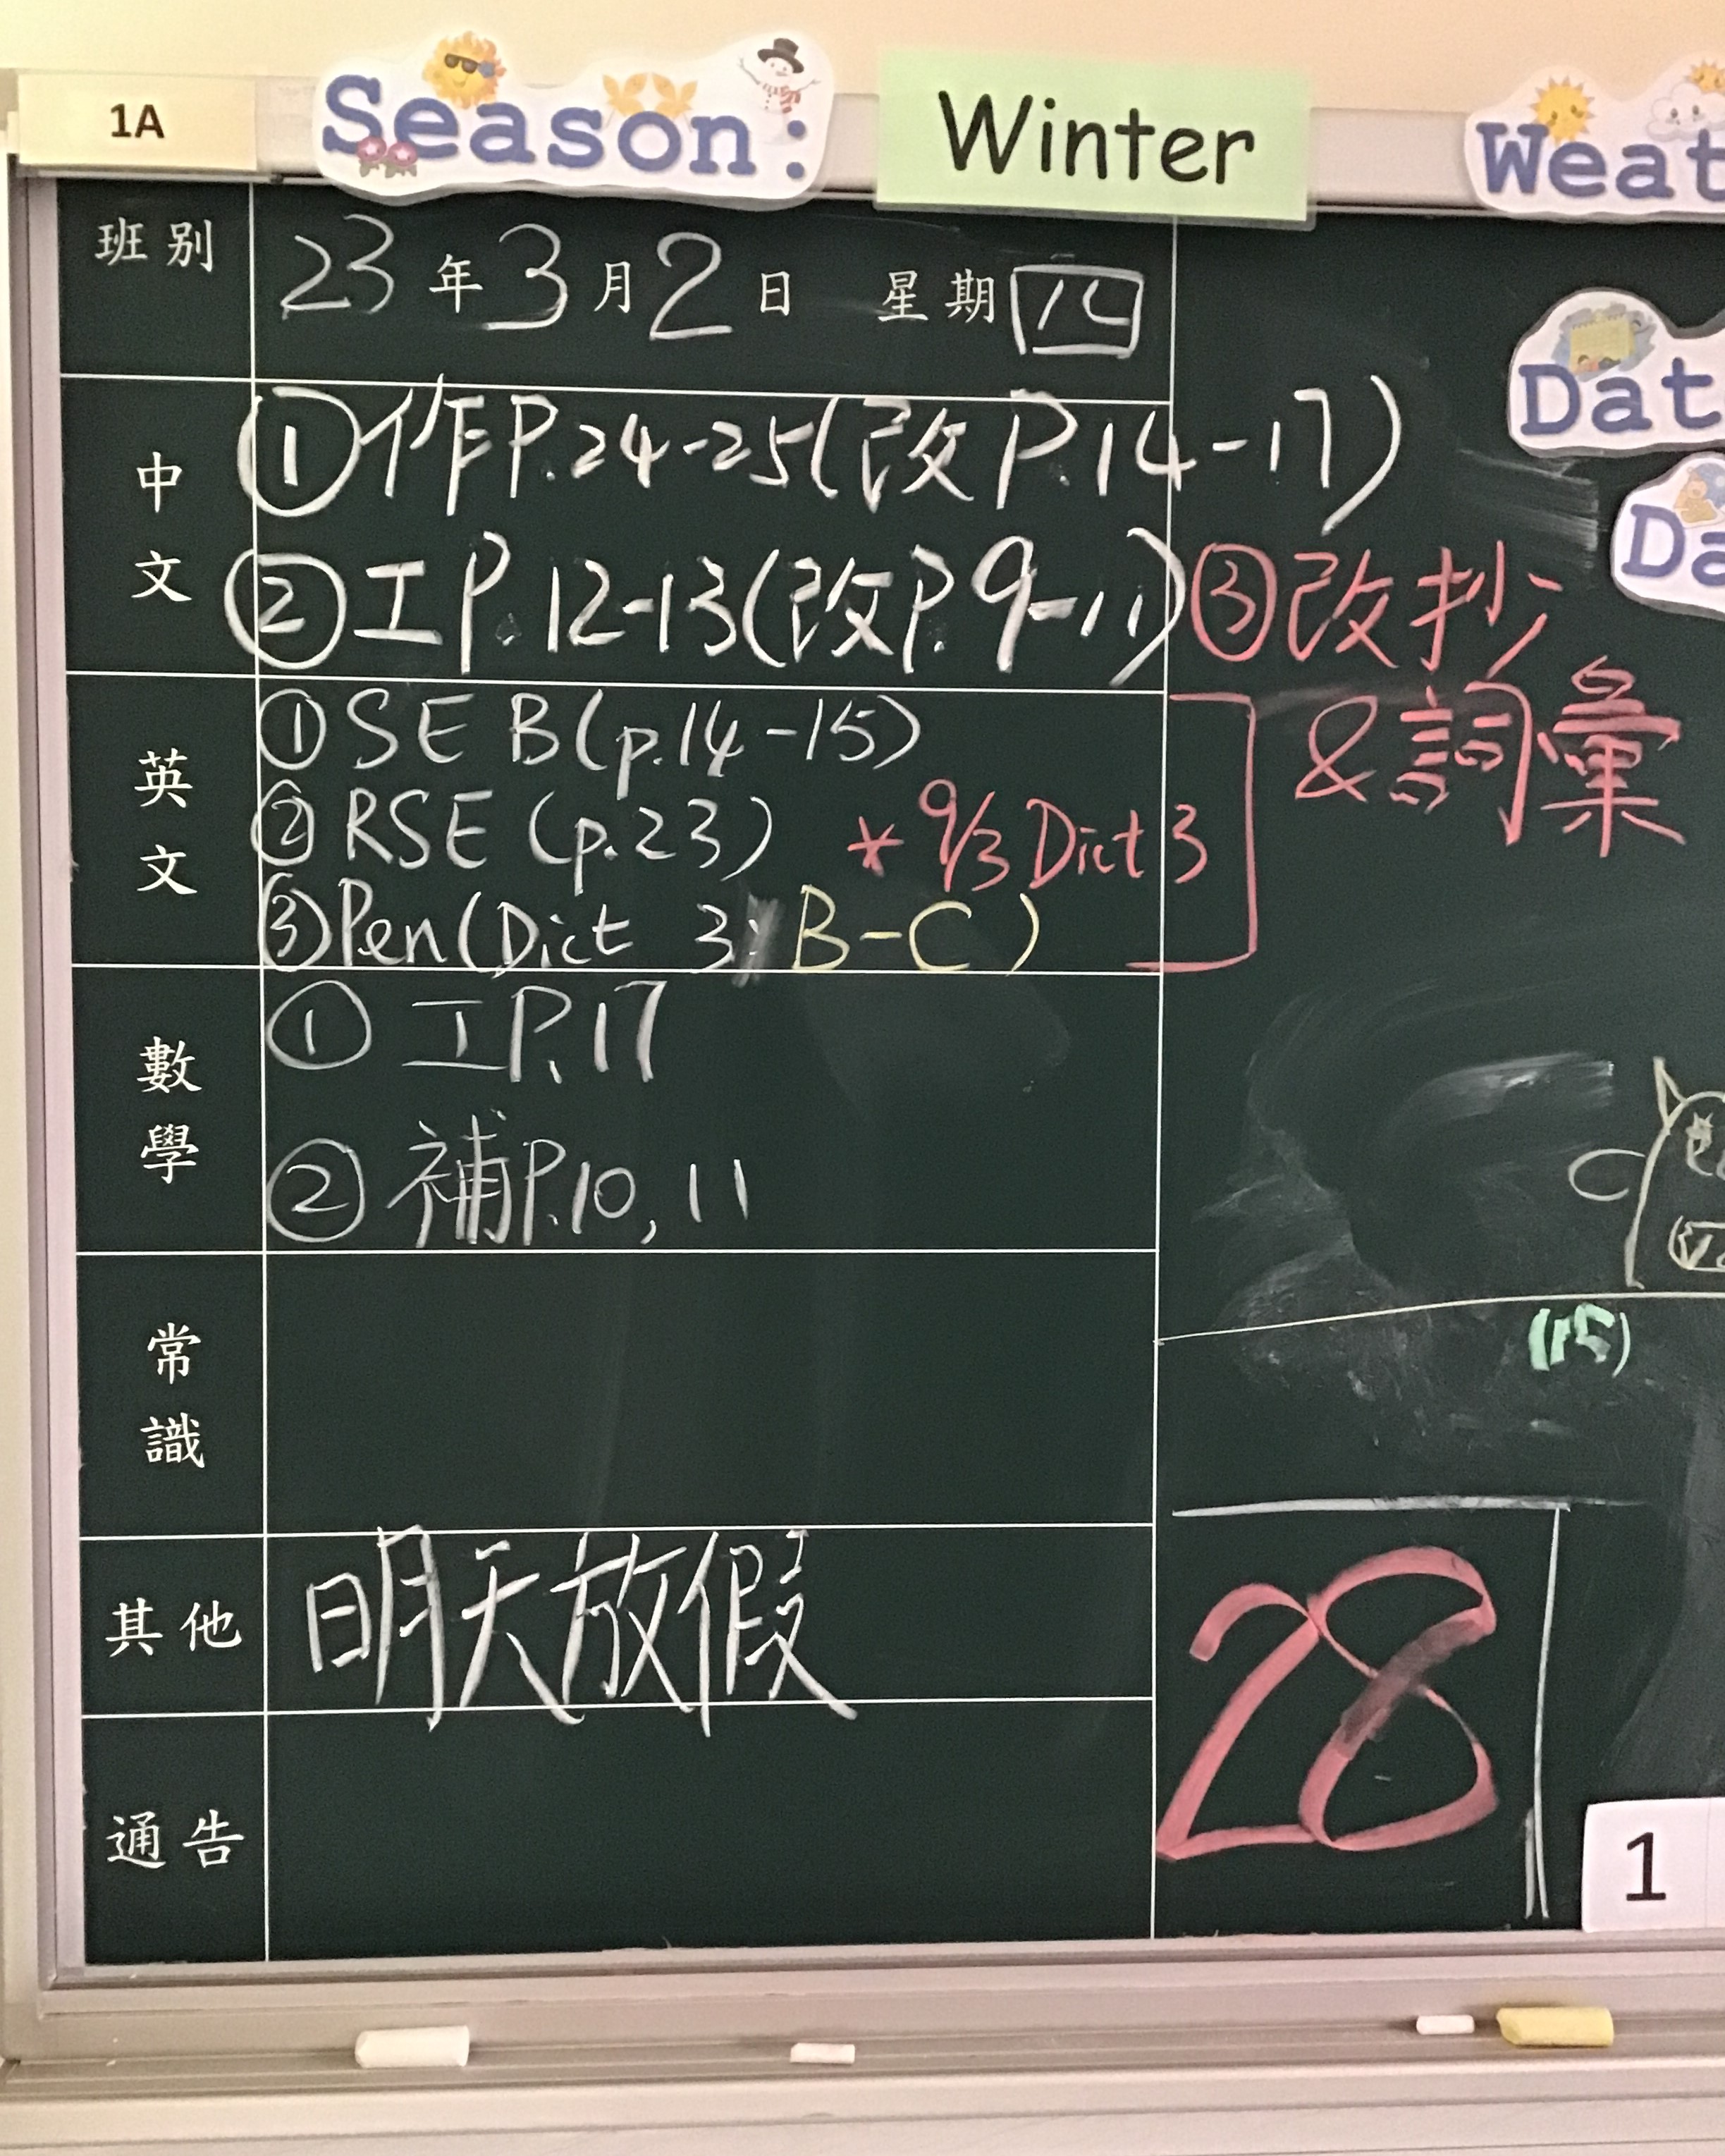 1A
Season:
Winter
Weat
班別
23年3月2日 星期四
Dat
Da
中文
①作P.24-25(改P.14-17)
②工P.12-13(改P.9-11)
③改抄
&詞彙
英文
①SE B(p.14-15)
②RSE (p.23)
* 9/3 Dict 3
③Pen(Dict 3: B-C)
數學
①工P.17
②補P.10, 11
常識
其他
明天放假
28
通告
1